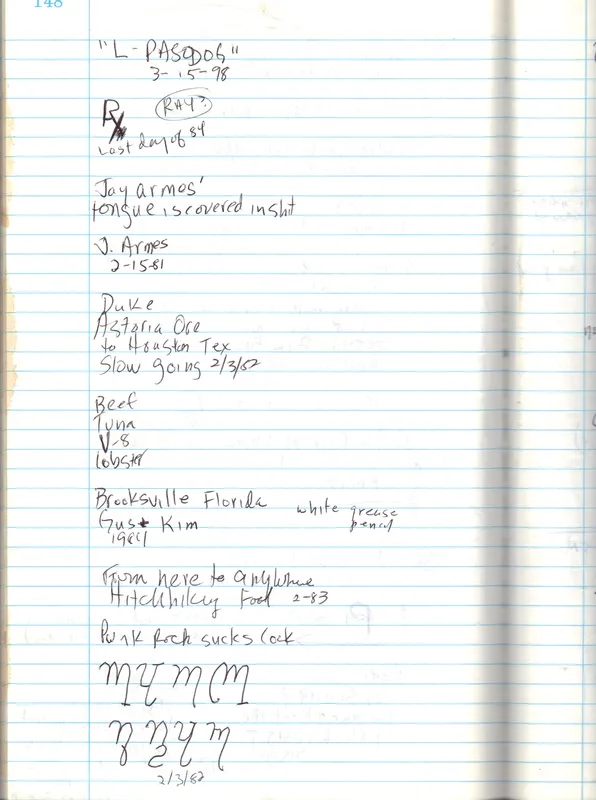 148
"L-PASODOG"
3-15-98
Rx RAY?
Last day of 84
Jay armes'
tongue is covered in shit
J. Armes
2-15-81
Duke
Astoria Ore
to Houston Tex
Slow going 2/3/82
Beef
Tuna
V-8
lobster
Brooksville Florida
Gus + Kim
1984
white grease
pencil
From here to anywhere
Hitchhiking Fool 2-83
Punk Rock sucks Cock
2/3/82